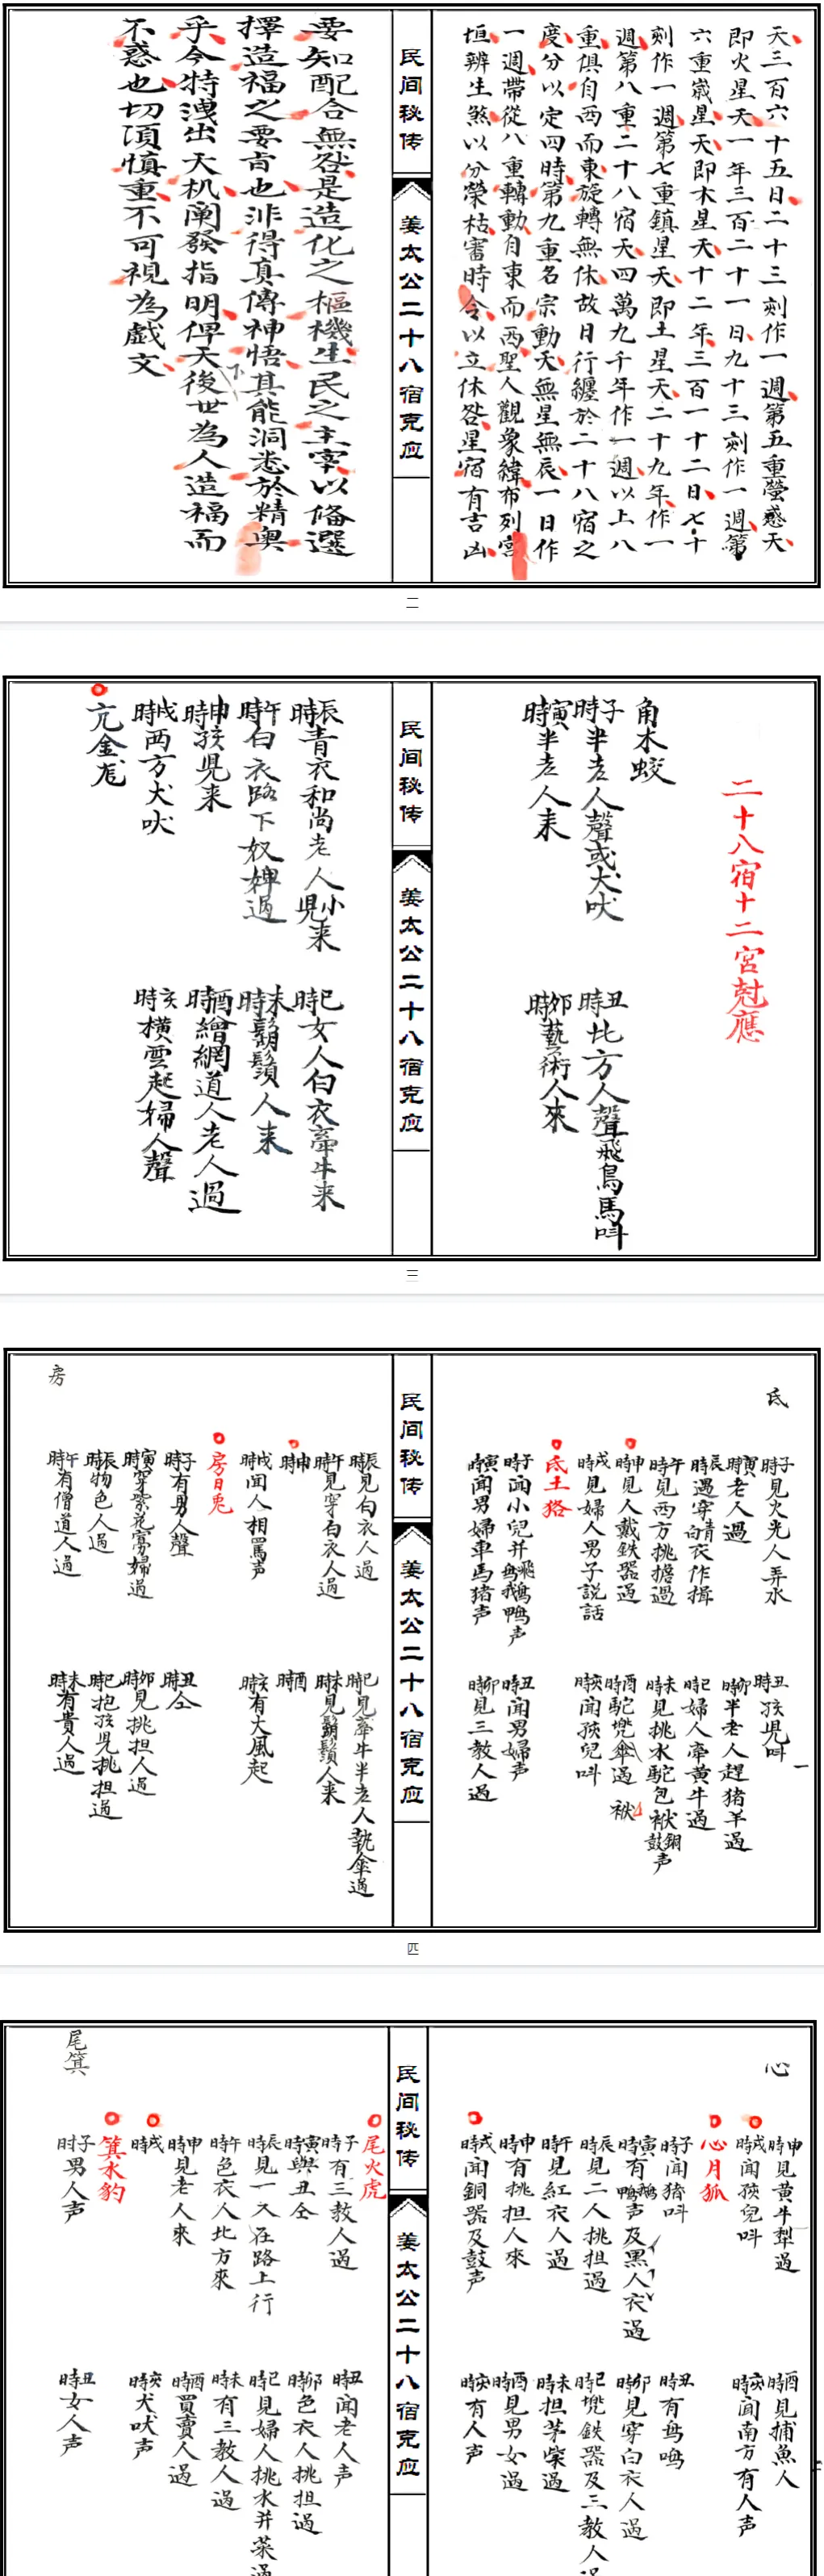 天三百六十五日二十三刻作一週第五重螢惑天
即火星天一年三百二十一日九十三刻作一週第
六重嵗星天即木星天十二年三百一十二日七十
刻作一週第七重鎮星天即土星天二十九年作一
週第八重二十八宿天四萬九千年作一週以上八
重俱自西而東旋轉無休故日行纏於二十八宿之
度分以定四時第九重名宗動天無星無辰一日作
一週帶從八重轉動自東而西聖人觀象緯布列宮
垣辨生煞以分榮枯審時令以立休咎星宿有吉凶
民间秘传
姜太公二十八宿克应
要知配合無咎是造化之樞機生民之主宰以備選
擇造福之要旨也非得真傳神悟其能洞悉於精奥
乎今特洩出天机阐發指明俾天下後世為人造福而
不惑也切須慎重不可視為戯文
二
二十八宿十二宮尅應
角木蛟
子時半老人聲或犬吠
丑時北方人聲飛鳥馬呌
寅時半老人来
卯時藝術人來
民间秘传
姜太公二十八宿克应
辰時青衣和尚老人小児来
巳時女人白衣牽牛来
午時白衣路下奴婢過
未時鬍鬚人来
申時孩児来
酉時繒網道人老人過
戌時西方犬吠
亥時橫雲起婦人聲
亢金龙
三
氐
子時見火光人弄水
丑時孩児呌
寅時老人過
卯時半老人趕猪羊過
辰時遇穿青白衣作揖
巳時婦人牽黄牛過
午時見西方挑擔過
未時見挑水駝包袱銅鼓声
申時見人戴鉄器過
酉時駝兠傘過
袱
戌時見婦人男子説話
亥時聞孩兒呌
氐土狢
子時雨小兒并飛鳥鵝鴨声
丑時聞男婦声
寅時聞男婦車馬猪声
卯時見三教人過
民间秘传
姜太公二十八宿克应
房
辰時見白衣人過
巳時見牽牛半老人執傘過
午時見穿白衣人過
未時見鬍鬚人来
申時
酉時
戌時聞人相罵声
亥時有大風起
房日兎
子時有男人聲
丑時仝
寅時穿紫花寡婦過
卯時見挑担人過
辰時物色人過
巳時抱孩児挑担過
午時有僧道人過
未時有貴人過
四
心
申時見黄牛犁過
酉時見捕魚人
戌時聞孩兒呌
亥時聞南方有人声
心月狐
子時聞猪呌
丑時有鸟鳴
寅時有鵝鴨声及黒人衣過
卯時見穿白衣人過
辰時見二人挑担過
巳時兠鉄器及三教人過
午時見紅衣人過
未時担茅柴過
申時有挑担人來
酉時見男女過
戌時聞銅器及鼓声
亥時有人声
民间秘传
姜太公二十八宿克应
尾箕
尾火虎
子時有三教人過
丑時聞老人声
寅時與丑仝
卯時色衣人挑担過
辰時見一人在路上行
巳時見婦人挑水并菜過
午時色衣人北方來
未時有三教人過
申時見老人來
酉時買賣人過
戌時
亥時犬吠声
箕水豹
子时男人声
丑時女人声